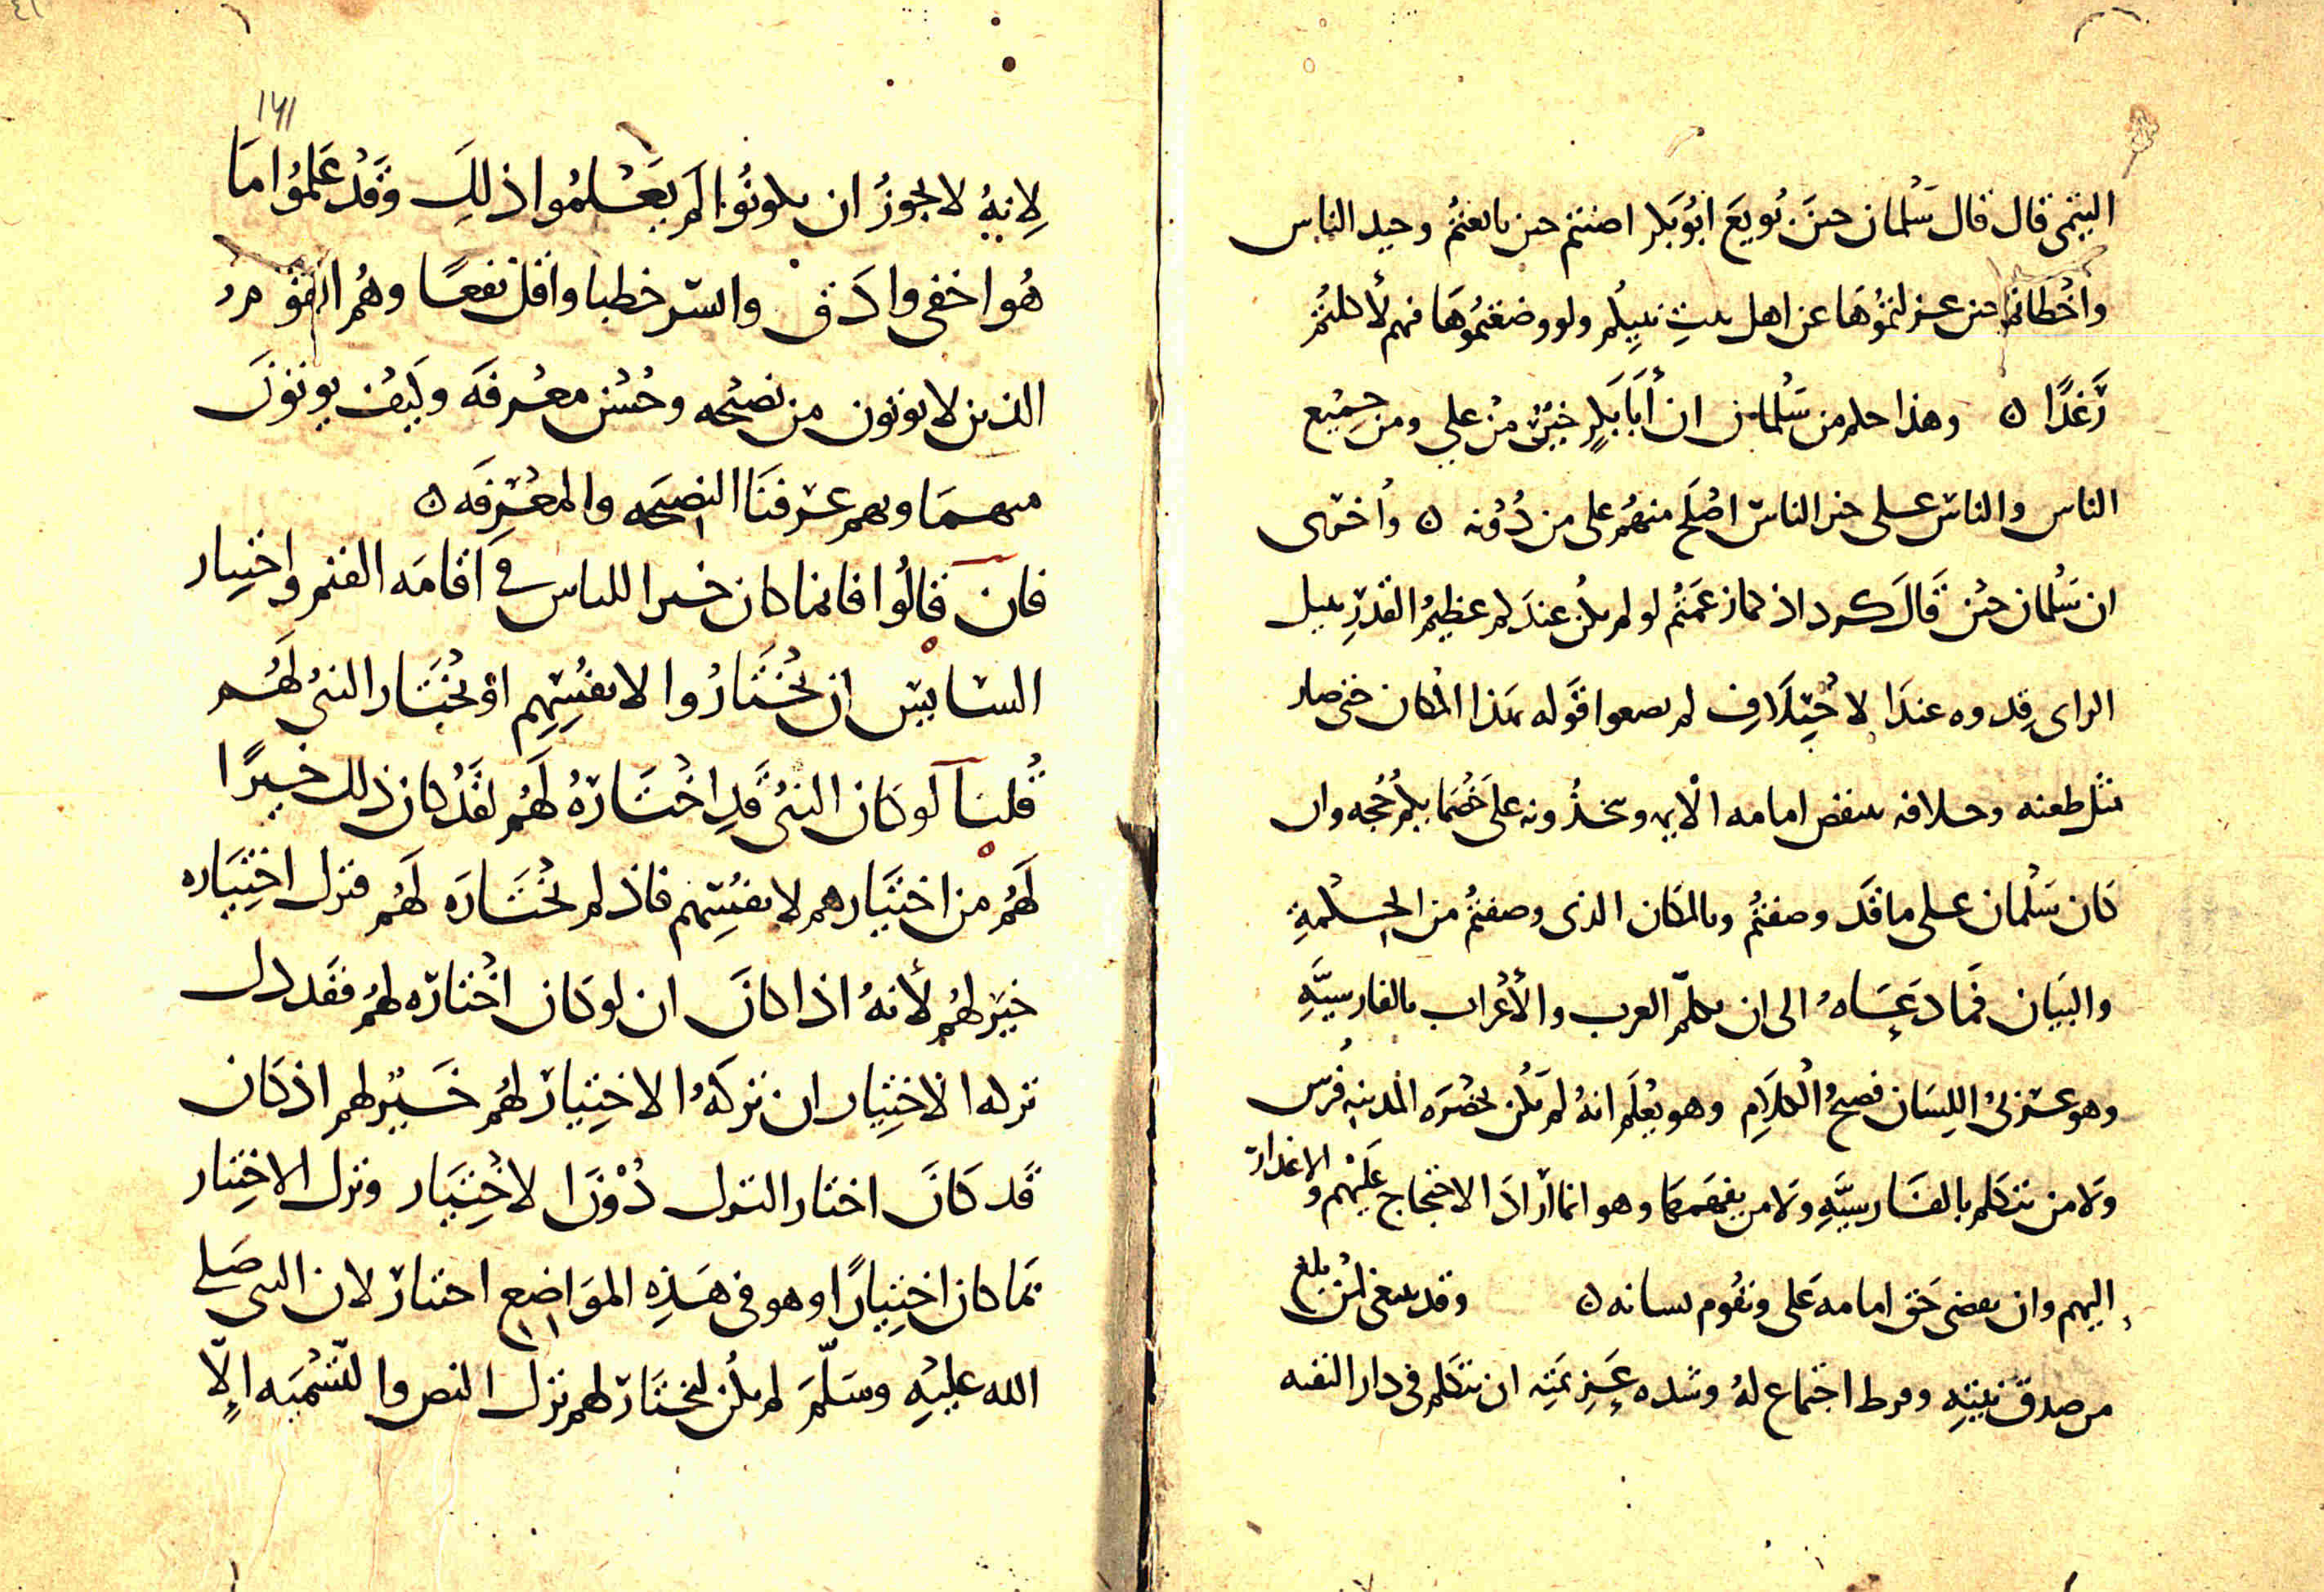 التيمى قال قال سَلمان حين بُويعَ ابُو بَكر اصبتم حين بايعتمُ وخير الناس
واخطاتم حين عزلتمُوهَا عن اهل بيتِ نبيكم ولو وضعتمُوهَا فيهم لأكلتمُ
رَغدًا ٥ وهذا حكم من سَلمان ان أبَا بَكرٍ خيرٌ من علي ومن جميع
الناس والناس على خير الناس اصلح منهُم على من دُونه ٥ واخرى
ان سَلمان حين قالَ كرد اذ كما زعمتمُ لو لم يكن عندكم عظيمُ القدرِ نبيل
الراى قدوه عندَ الاختِلَافِ لم تضعوا قوله بهذا المكان حتى صار
مثل طعنه وخلافه ينقض امامه الايمه وتتخذُونه على خُصَمايكمُ حُجه وان
كان سَلمان على ما قد وصفتمُ وبالمكان الذى وصفتمُ من الحكمةِ
والبيَان فمَا دَعَاهُ الى ان يكلم العرب والأعراب بالفارسيَّهِ
وهو عربىُ اللِسَان فصيحُ الكلَامِ وهو يعلَم انهُ لم يكن بحضرَه المدينه فُرس
ولا من يتكلم بالفارسيَّهِ ولا من يفهمهَا وهو انما ارادَ الاحتجاج عَليْهم والاعذار
اليهم وان يقضى حَق امامه عَلى ويقوم بسانه ٥ وقد ينبغى لمن بلغ
من صدق نيتِهِ وفرط اجتماع لهُ وشده عَزيمتِه ان يتكلم فى دار التقيه
١٦١
لِانهُ لا يجوزُ ان يكونُوا لم يَعْلمُوا ذلكَ وَقَدْ عَلمُوا مَا
هُو اخفى وادَق وايسَر خطبا واقل نفعًا وهُم
الذين لا يوتون من نصيحه وحُسْن معْرفَه وكيْف يوتونَ
منهمَا وبهم عرفنَا النصيحَه والمعْرِفَه ٥
فان قالُوا فانما كان خيرا للناس فى اقامَه القيم واختيار
السايس ان يختَارُوا لانفسِهِم او يختَار النبىُ لَهُم
قُلنا لو كان النبىُ قدِ اختَارهُ لَهُم لقَدْ كان ذلك خيرًا
لَهُم من اختيَارهم لانفُسِهم فاذ لم يختَارَه لهُم فترك اختيَاره
خيَر لهُم لأنهُ اذا كانَ ان لو كان اختارَه لهُم فقَد دل
تركه الاختِيار ان تركَهُ الاختِيارَ لهُم خَيْر لهم اذ كان
قَد كَانَ اختار الترك دُونَ الاختيَار وترك الاختِيار
بما كان اختِيارًا وهو فى هَذِهِ الموَاضع اختار لان النبى صَلى
الله عليهِ وسَلمَ لم يكُن ليختَارَ لهم ترك النص والتسْميَه الّا